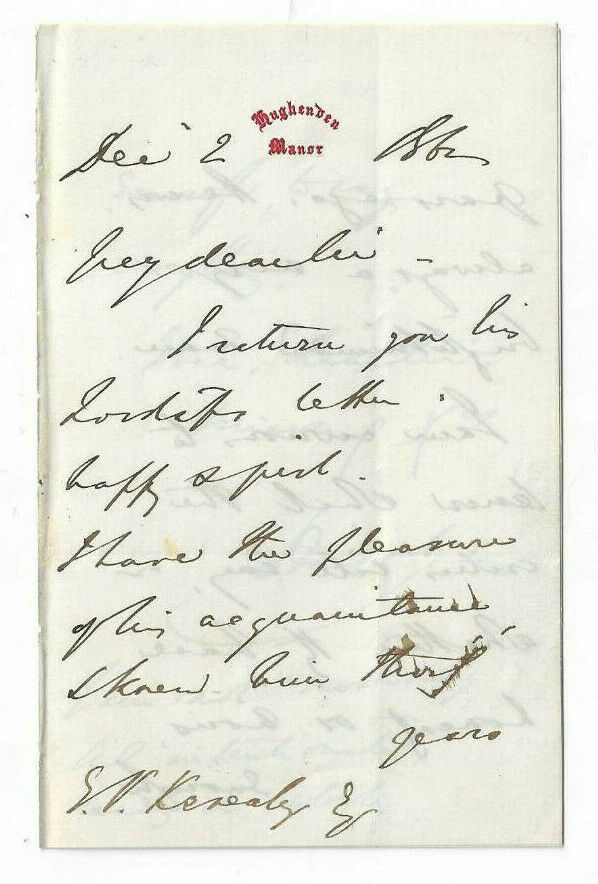 Hughenden
Manor
Dec 2 186
My dear Sir -
I return you his
Lordship's letter.
happy &
I have the pleasure
of his acquaintance
& knew him thirty
years
E.V. Kenealy Esq